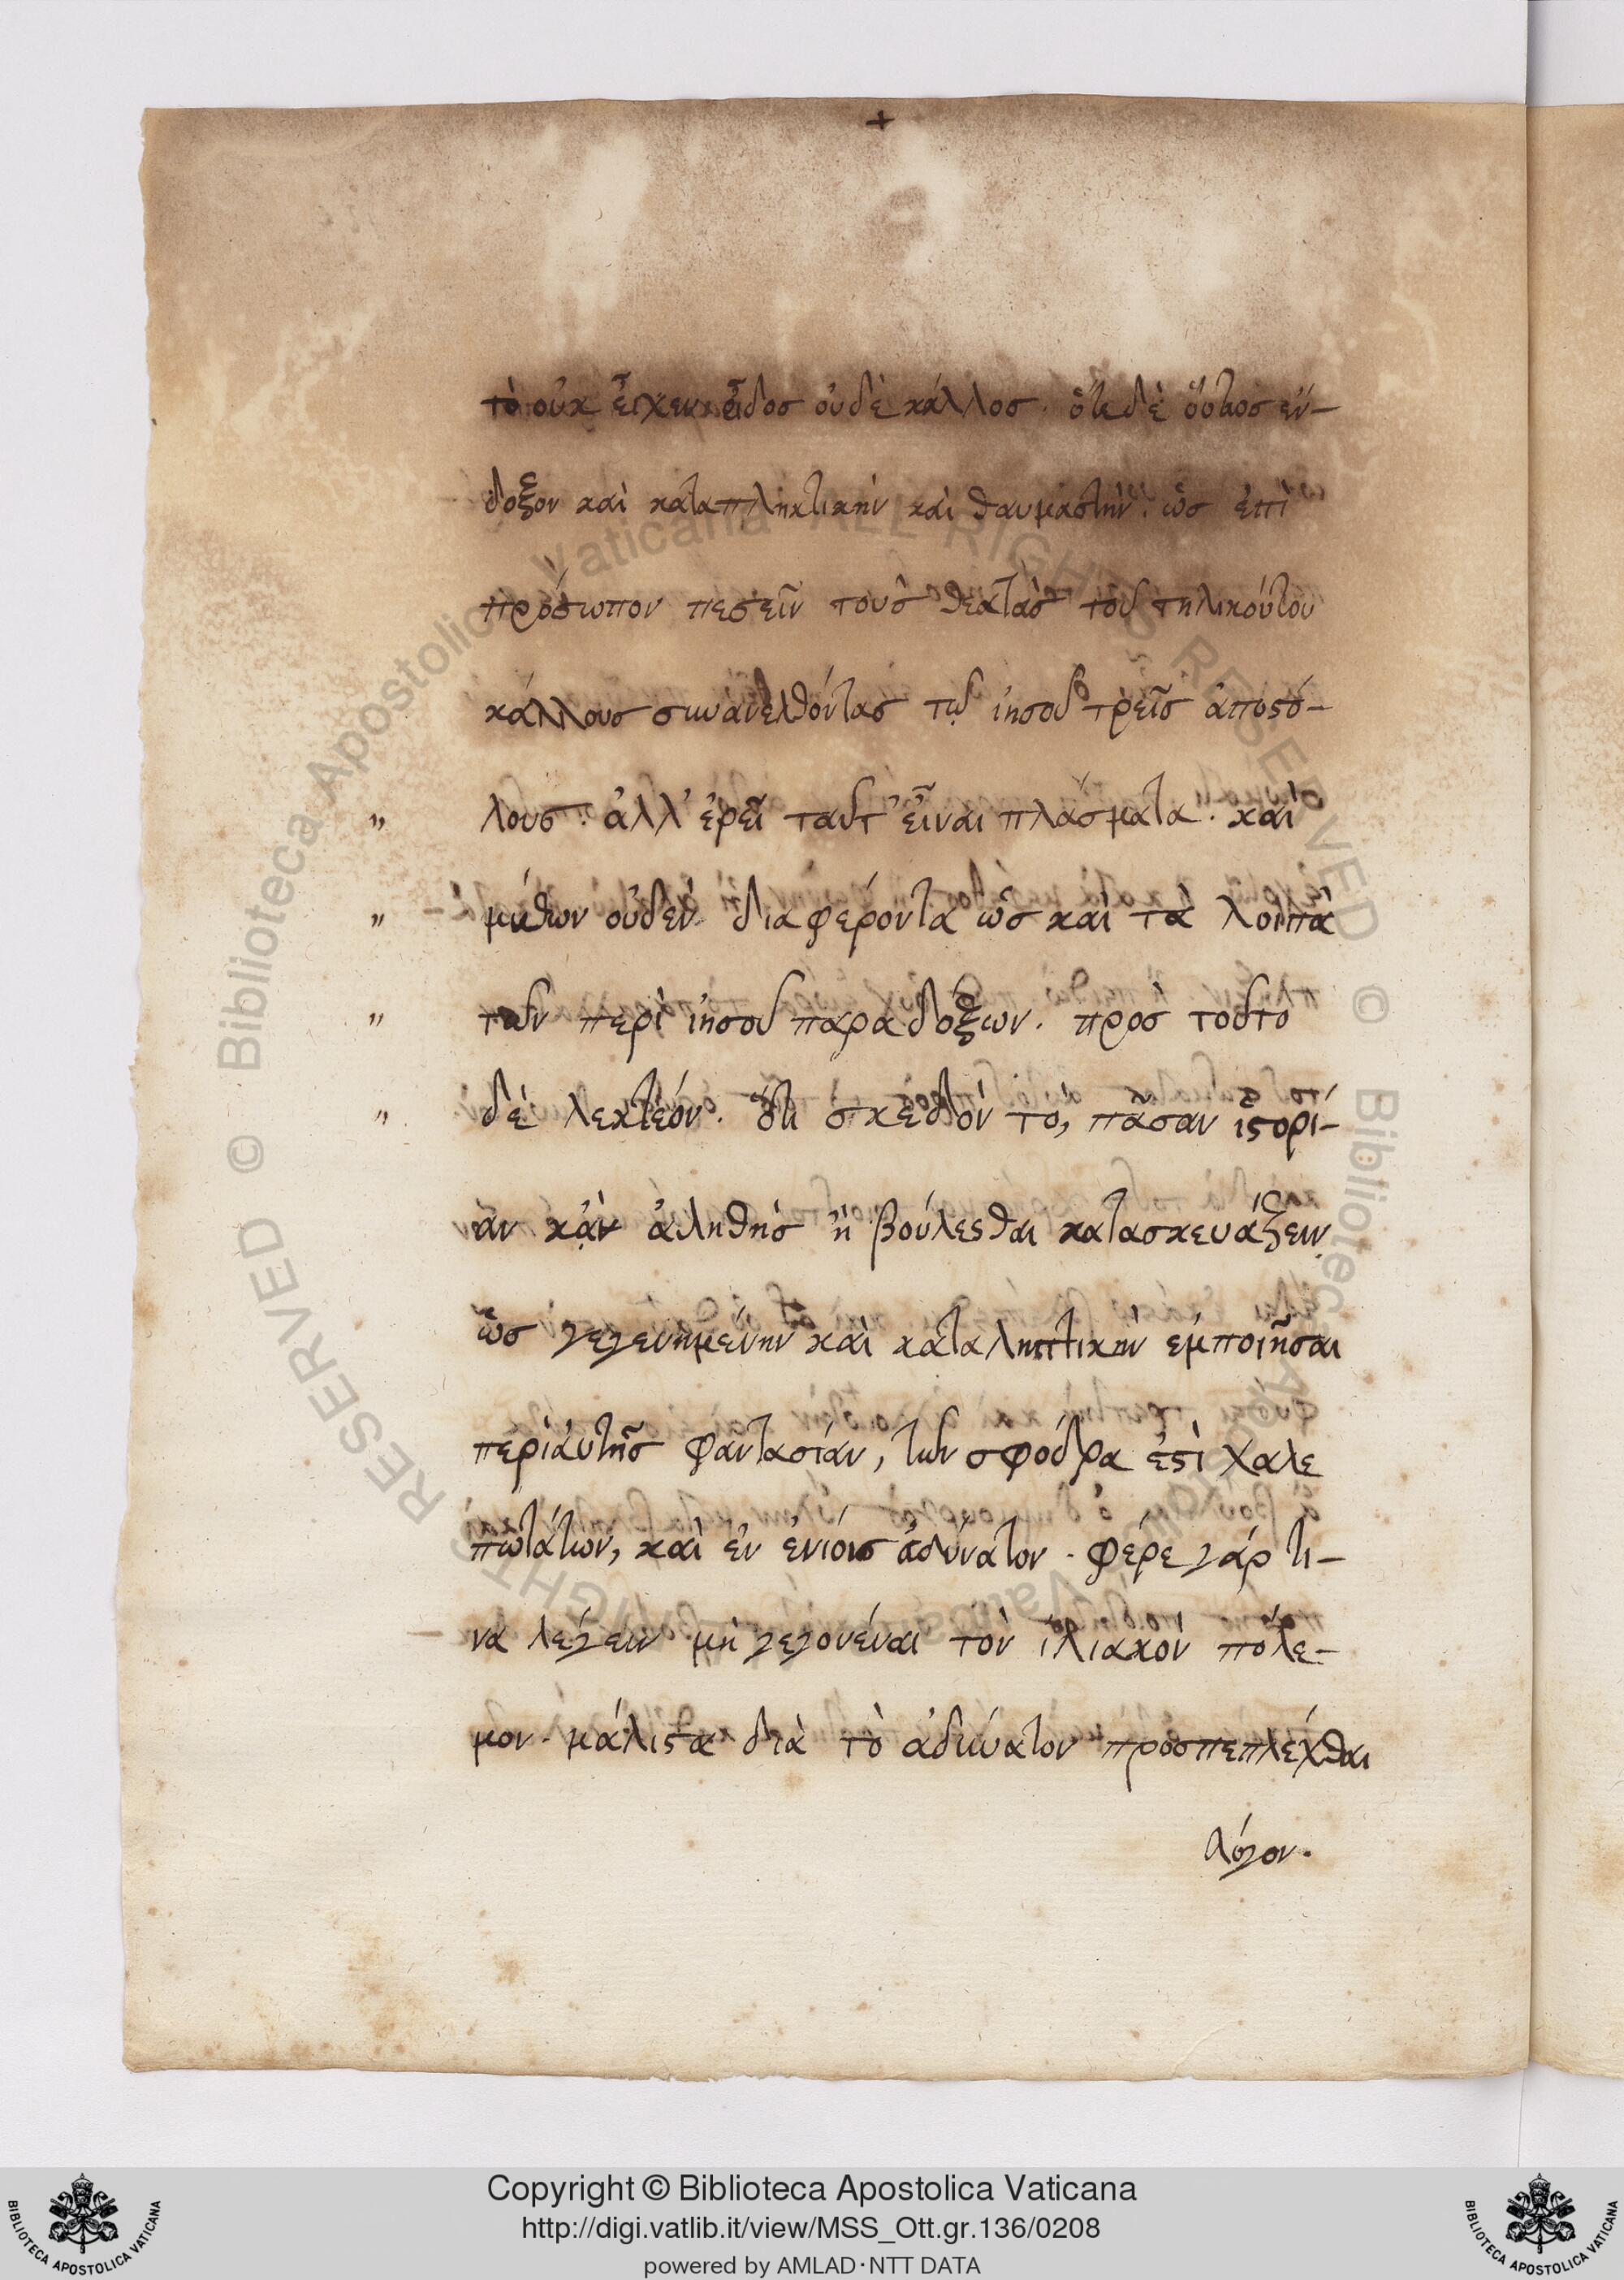 +
τὸ οὐκ εἶχεν εἶδος οὐδὲ κάλλος. ὅτε δὲ οὕτως ἔν-
δοξον καὶ καταπληκτικὴν καὶ θαυμαστὴν. ὡς ἐπὶ
πρόσωπον πεσεῖν τοὺς θεατὰς τοῦ τηλικούτου
κάλλους συνανελθόντας τῷ ἰησοῦ τρεῖς ἀποστό-
" λους. ἀλλ' ἐρεῖ ταῦτ' εἶναι πλάσματα. καὶ
" μύθων οὐδὲν διαφέροντα ὡς καὶ τὰ λοιπὰ
" τῶν περὶ ἰησοῦ παραδόξων. πρὸς τοῦτο
" δὲ λεκτέον. ὅτι σχεδὸν τὸ, πᾶσαν ἱστορί-
αν κἂν ἀληθὴς ἦ βούλεσθαι κατασκευάζειν
ὡς γεγενημένην καὶ καταληπτικὴν ἐμποιῆσαι
περὶ αὐτῆς φαντασίαν, τῶν σφόδρα ἐστὶ χαλε
πωτάτων, καὶ ἐν ἐνίοις ἀδύνατον. φέρε γάρ τι-
νὰ λέγειν μὴ γεγονέναι τὸν ἰλιακὸν πόλε-
μον. μάλιστα διὰ τὸ ἀδύνατον προσπεπλέχθαι
λόγον.
Copyright © Biblioteca Apostolica Vaticana
http://digi.vatlib.it/view/MSS_Ott.gr.136/0208
powered by AMLAD·NTT DATA
BIBLIOTECA APOSTOLICA VATICANA
BIBLIOTECA APOSTOLICA VATICANA
© Biblioteca Apostolica Vaticana ALL RIGHTS RESERVED
© Biblioteca Apostolica Vaticana ALL RIGHTS RESERVED